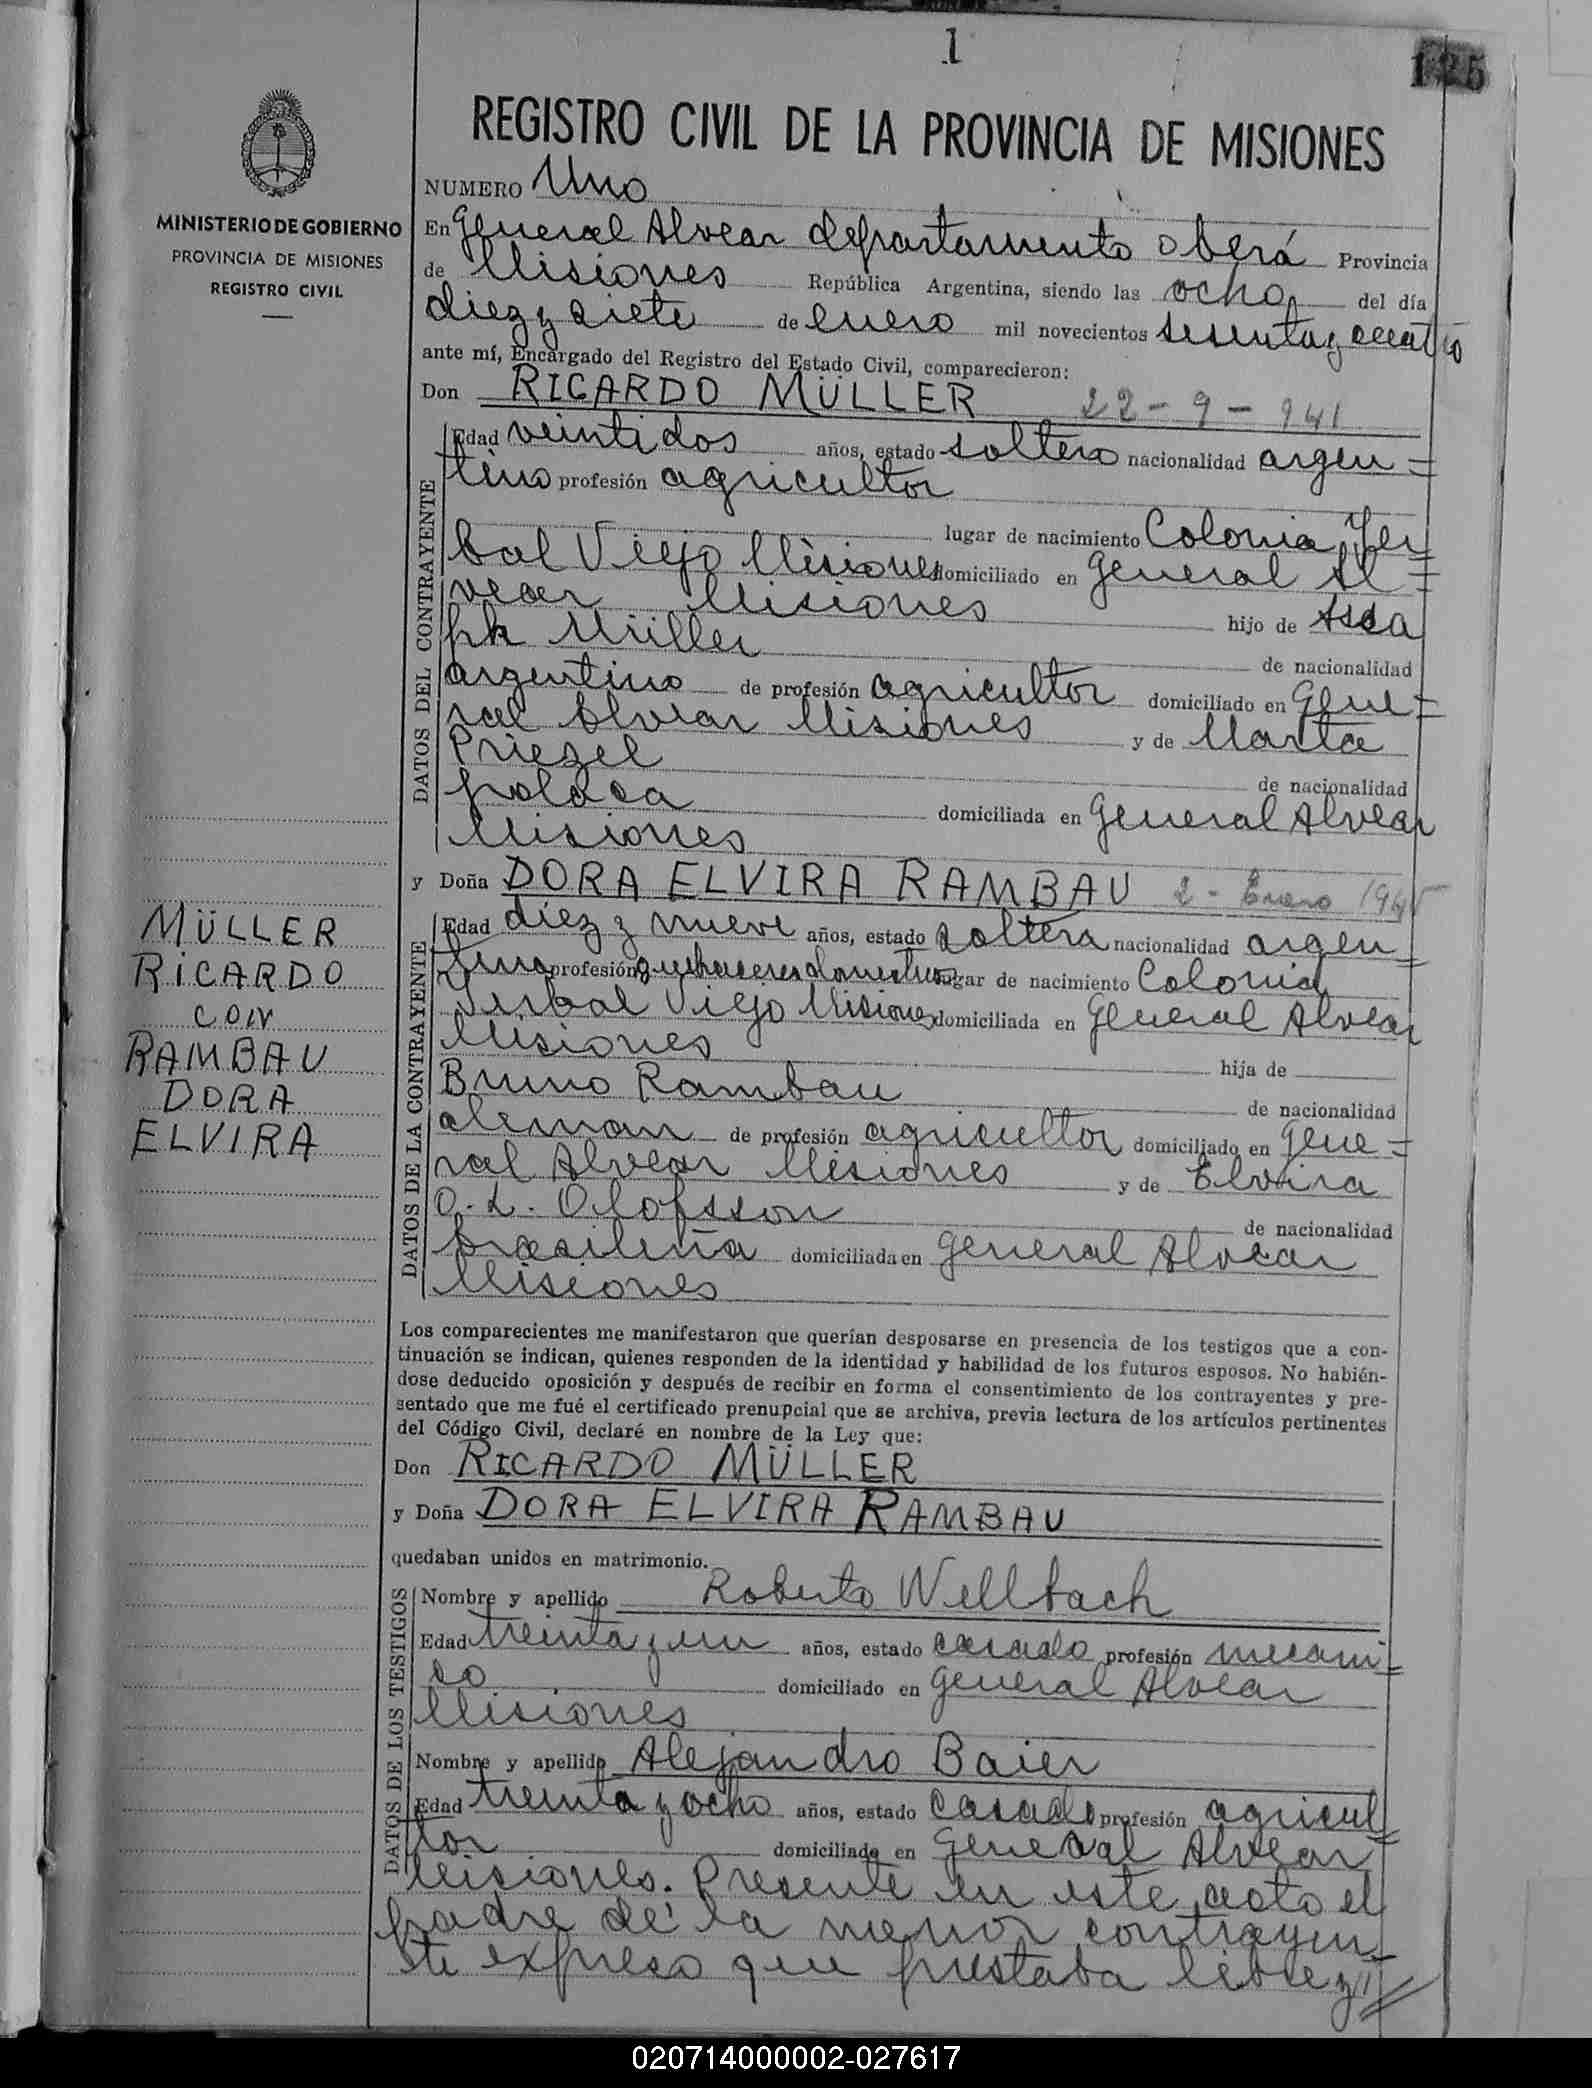 1
125
REGISTRO CIVIL DE LA PROVINCIA DE MISIONES
MINISTERIO DE GOBIERNO
PROVINCIA DE MISIONES
REGISTRO CIVIL
NUMERO Uno
En General Alvear departamento Oberá Provincia
de Misiones República Argentina, siendo las ocho del día
diez y siete de enero mil novecientos sesenta y cuatro
ante mí, Encargado del Registro del Estado Civil, comparecieron:
Don RICARDO MÜLLER 22-9-941
DATOS DEL CONTRAYENTE
Edad veintidos años, estado soltero nacionalidad argen=
tino profesión agricultor
lugar de nacimiento Colonia Yer
bal Viejo Misiones domiciliado en General Al=
vear Misiones hijo de
Müller de nacionalidad
argentino de profesión agricultor domiciliado en Gene=
ral Alvear Misiones y de Marta
Priezel de nacionalidad
polaca domiciliada en General Alvear
Misiones
y Doña DORA ELVIRA RAMBAU 2-Enero 1945
DATOS DE LA CONTRAYENTE
Edad diez y nueve años, estado soltera nacionalidad argen
tina profesión quehaceres domesticos lugar de nacimiento Colonia
Yerbal Viejo Misiones domiciliada en General Alvear
Misiones hija de
Bruno Rambau de nacionalidad
aleman de profesión agricultor domiciliado en Gene=
ral Alvear Misiones y de Elvira
O. L. Olofsson de nacionalidad
brasileña domiciliada en General Alvear
Misiones
MÜLLER
RICARDO
CON
RAMBAU
DORA
ELVIRA
Los comparecientes me manifestaron que querían desposarse en presencia de los testigos que a con-
tinuación se indican, quienes responden de la identidad y habilidad de los futuros esposos. No habién-
dose deducido oposición y después de recibir en forma el consentimiento de los contrayentes y pre-
sentado que me fué el certificado prenupcial que se archiva, previa lectura de los artículos pertinentes
del Código Civil, declaré en nombre de la Ley que:
Don RICARDO MÜLLER
y Doña DORA ELVIRA RAMBAU
quedaban unidos en matrimonio.
DATOS DE LOS TESTIGOS
Nombre y apellido Roberto Wellbach
Edad treinta y un años, estado casado profesión mecani=
co domiciliado en General Alvear
Misiones
Nombre y apellido Alejandro Baier
Edad treinta y ocho años, estado casado profesión agricul
tor domiciliado en General Alvear
Misiones. Presente en este acto el
padre de la menor contrayen
te expreso que prestaba libre y//
020714000002-027617